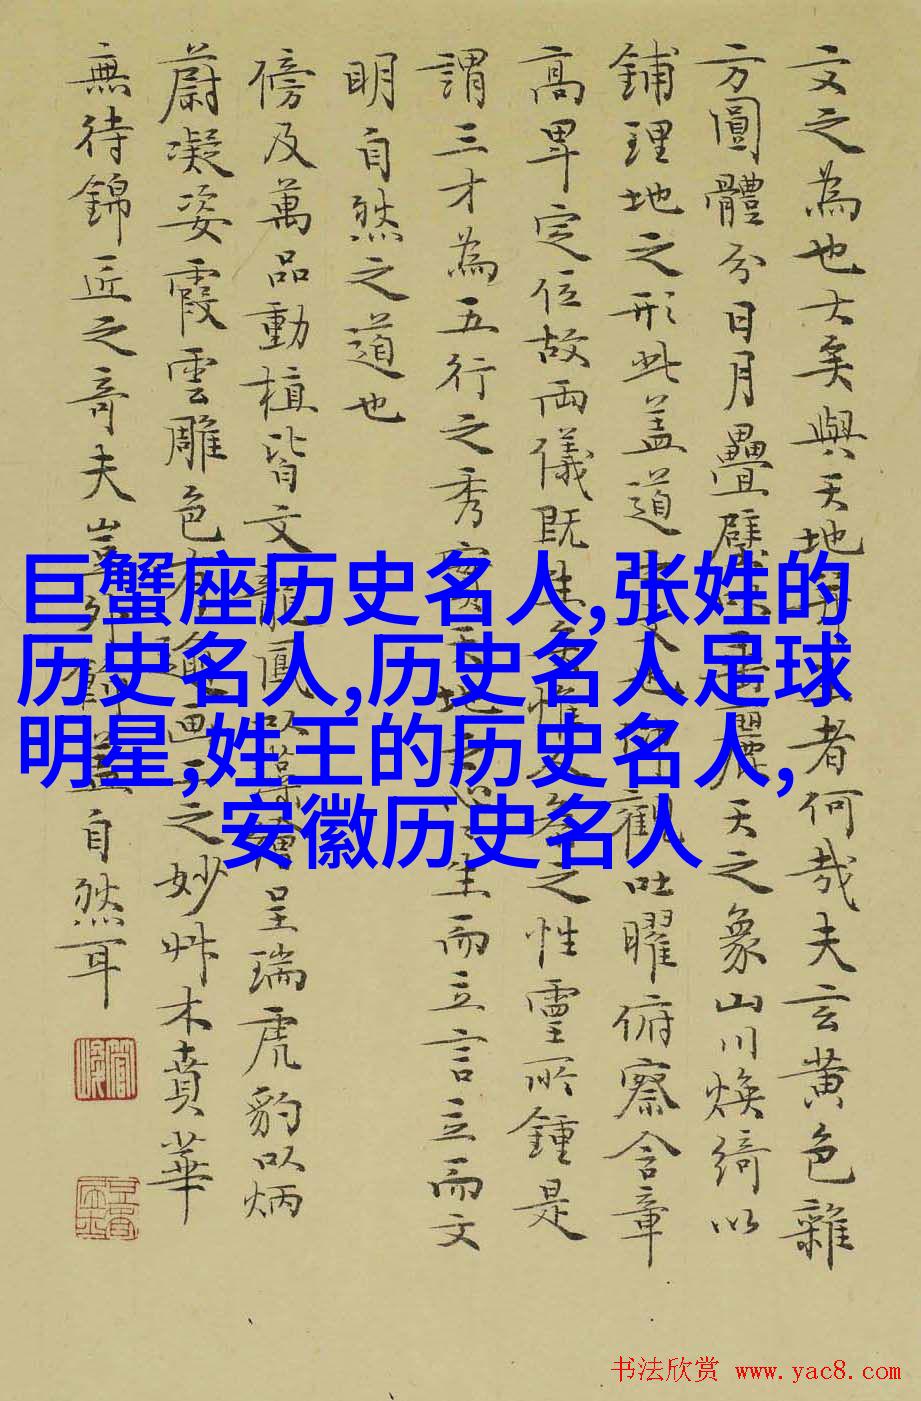 文之為也大矣與天地生者何哉夫玄黄色雜
方圓體分日月疊璧以麗天之象山川煥綺以
鋪理地之形此盖道之文也觀吐曜俯察含章
高卑定位故兩儀既生矣惟人之性靈所鍾是
謂三才為五行之秀實天地生而立言立而文
明自然之道也
傍及萬品動植皆文龍鳳以藻繪呈瑞虎豹以炳
蔚凝姿霞雲雕色有畫工之妙艸木賁華
無待錦匠之奇夫豈外飾蓋自然耳
巨蟹座历史名人,张姓的
历史名人,历史名人足球
明星,姓王的历史名人,
安徽历史名人
书法欣赏 www.yac8.com